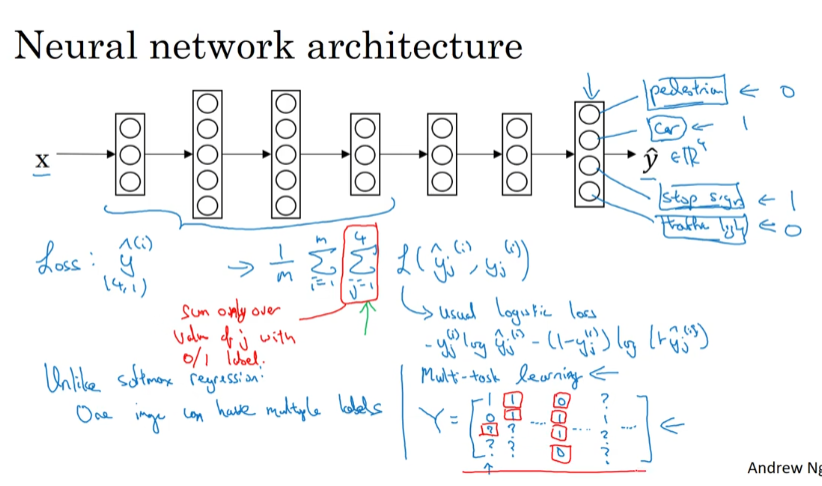 Neural network architecture
pedestrian ← 0
car ← 1
x
ŷ ∈ ℝ⁴
stop sign ← 1
traffic light ← 0
Loss: ŷ^(i) → 1/m Σ_{i=1}^{m} Σ_{j=1}^{4} L(ŷ_j^(i), y_j^(i))
(4,1)
Sum only over
value of j with
0/1 label.
usual logistic loss
- y_j^(i) log ŷ_j^(i) - (1-y_j^(i)) log (1-ŷ_j^(i))
Unlike softmax regression:
One image can have multiple labels
Multi-task learning ←
Y = [
1 1 0 ?
0 1 .... 1 1 ....
? ? .... 1 ? ....
? ? 0 ?
] ←
Andrew Ng